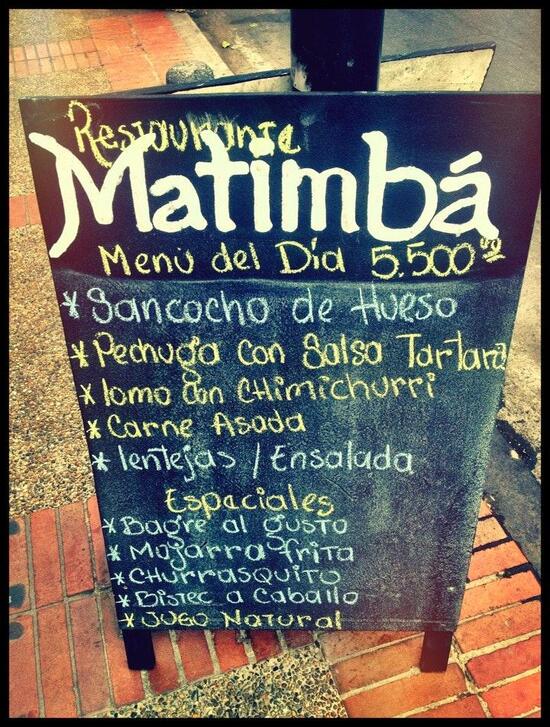 Restaurante
Matimbá
Menú del Día 5.500
* Sancocho de Hueso
* Pechuga con Salsa Tartara
* lomo con CHimichurri
* Carne Asada
* lentejas / Ensalada
Especiales
* Bagre al gusto
* Mojarra frita
* CHURRASQUITO
* Bistec a Caballo
* JUGO Natural